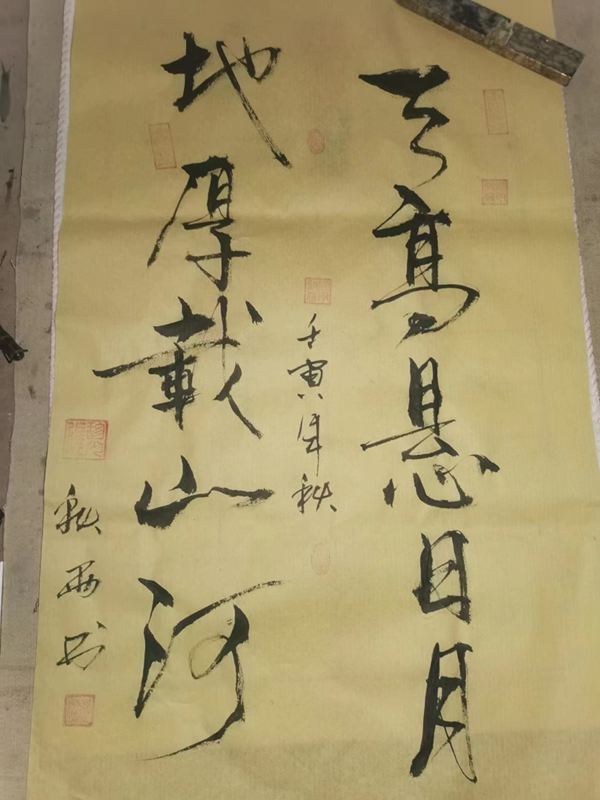 天高悬日月
壬寅年秋
地厚載山河
秋雨书